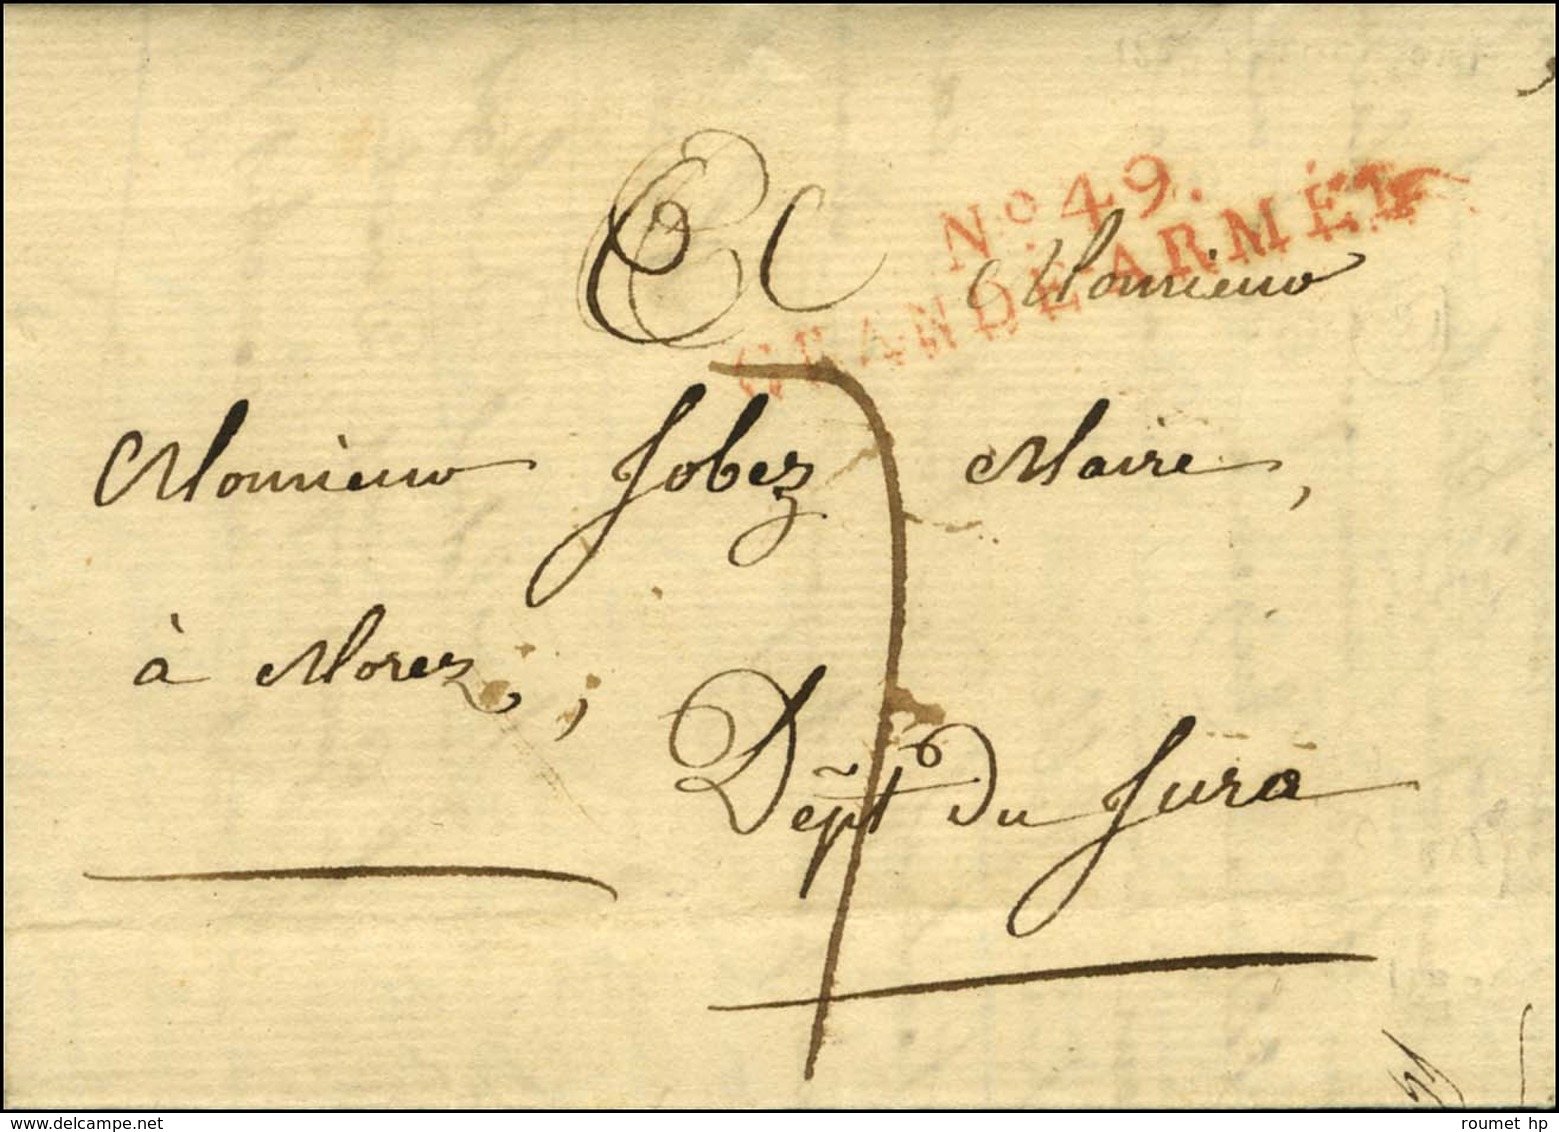 N° 49.
GRANDE-ARMÉE
A Monsieur
Monsieur Jobez Maire,
à Morez,
Dépt du Jura
7
delcampe.net
roumet hp